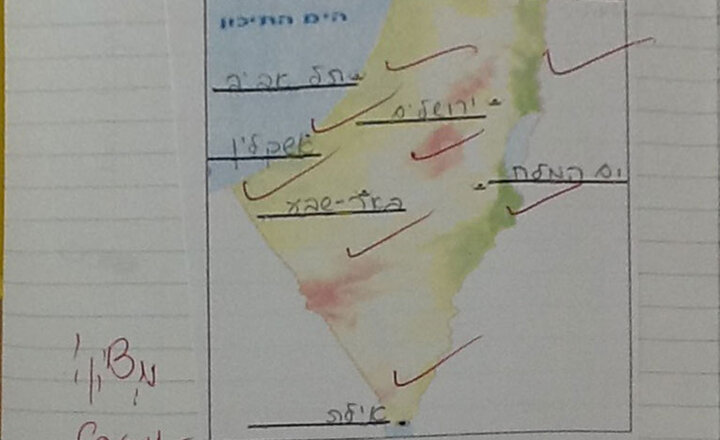 הים התיכון
תל אביב
ירושלים
אשקלון
ים המלח
באר-שבע
אילת
מצוין